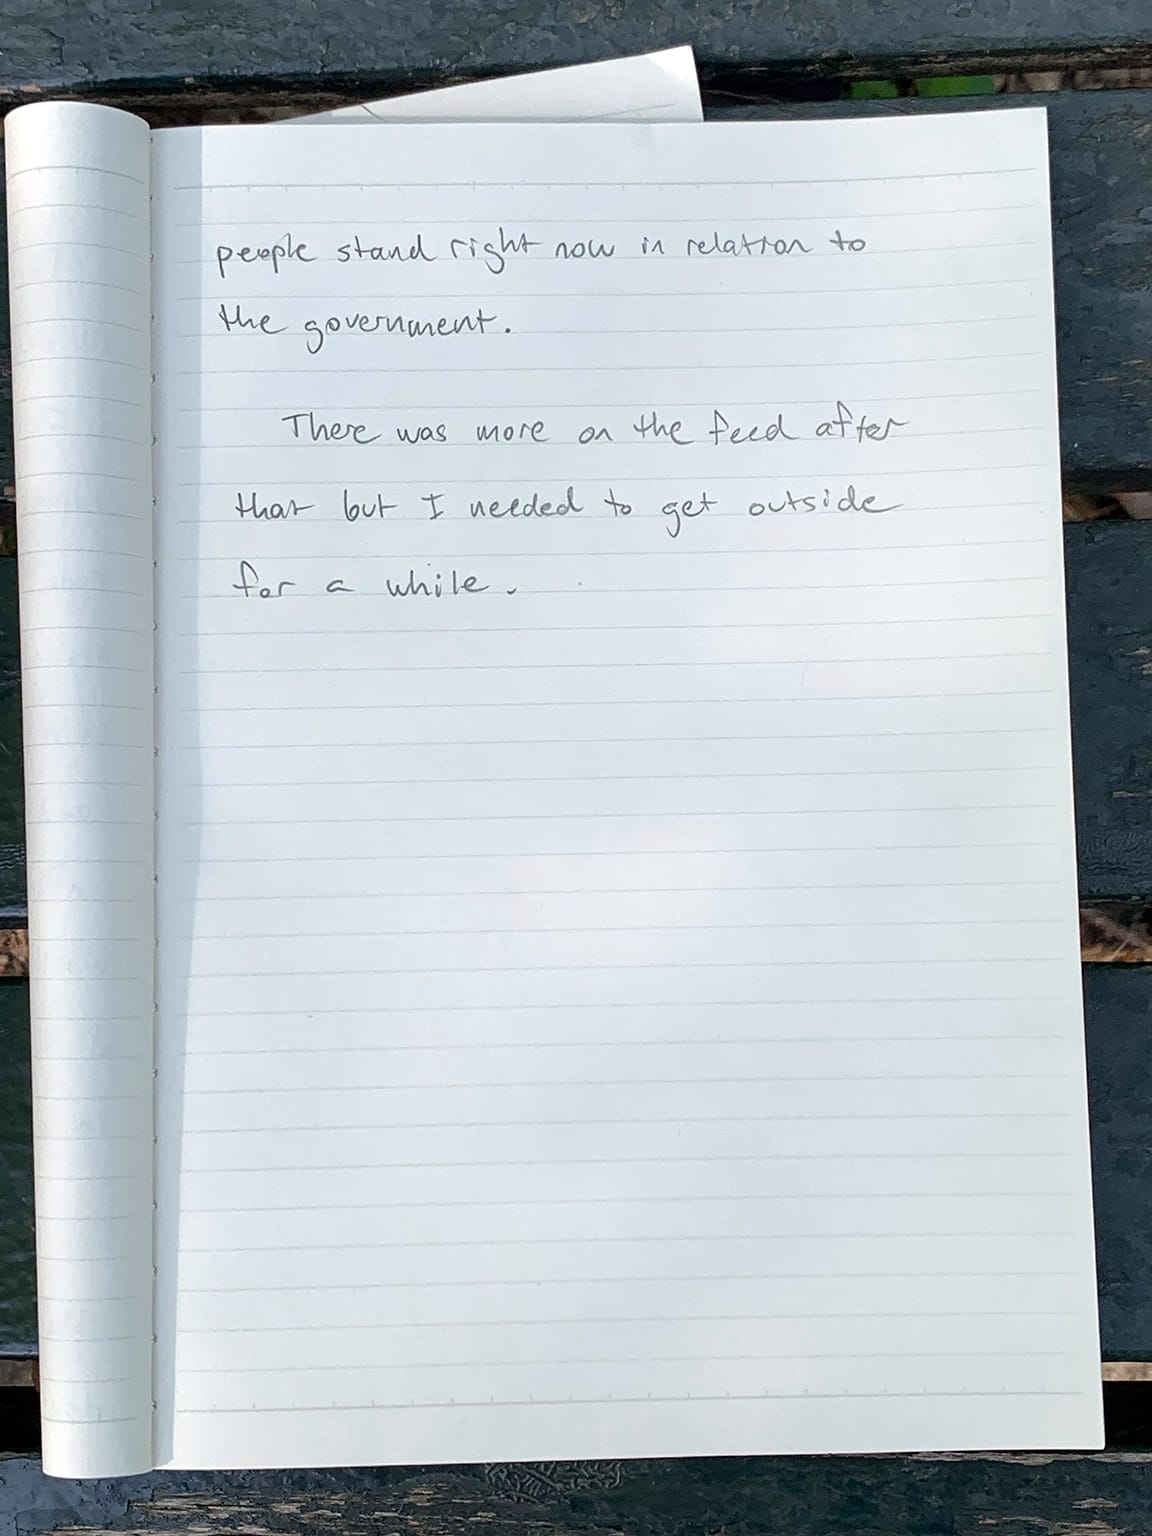 people stand right now in relation to
the government.
There was more on the feed after
that but I needed to get outside
for a while.